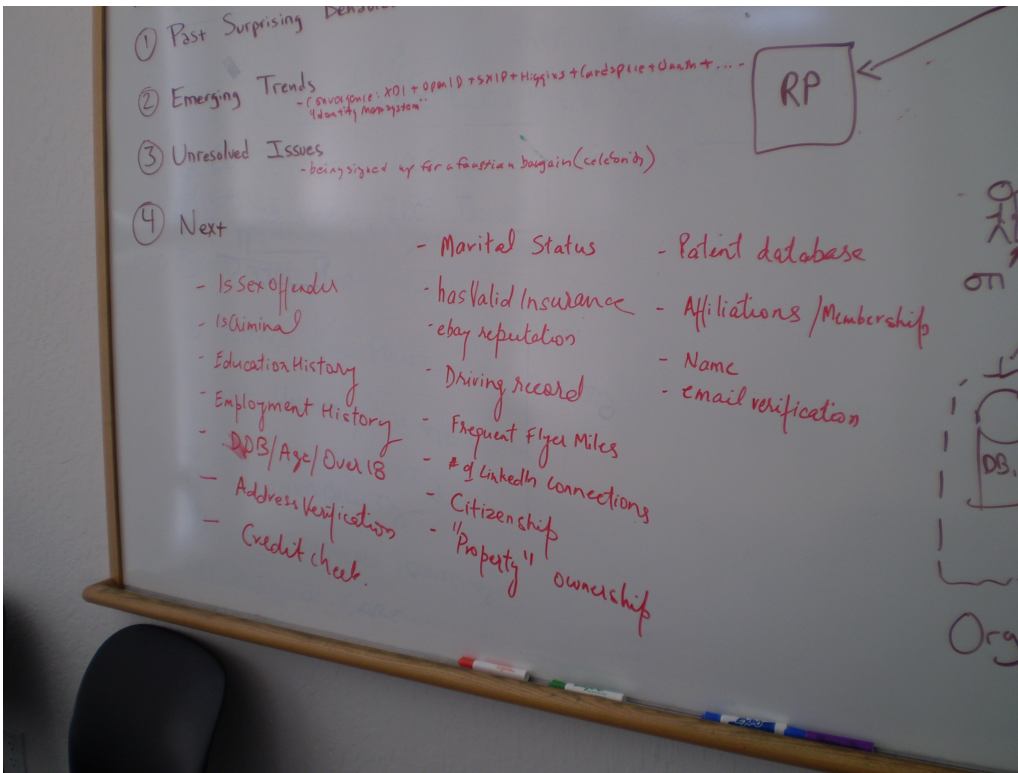 ① Past Surprising
② Emerging Trends
- Convergence: XDI + OpenID + SXIP + Higgins + Cardspace + + ...
"Identity
③ Unresolved Issues
- being signed up for a faustian bargain
④ Next
- IsSexOffender
- IsCriminal
- Education History
- Employment History
- DOB/Age/Over 18
- Address Verification
- Credit check.
- Marital Status
- hasValid Insurance
- ebay reputation
- Driving record
- Frequent Flyer Miles
- # of LinkedIn connections
- Citizenship
- "Property" ownership
- Patent database
- Affiliations / Membership
- Name
- email verification
RP
DB.
Org